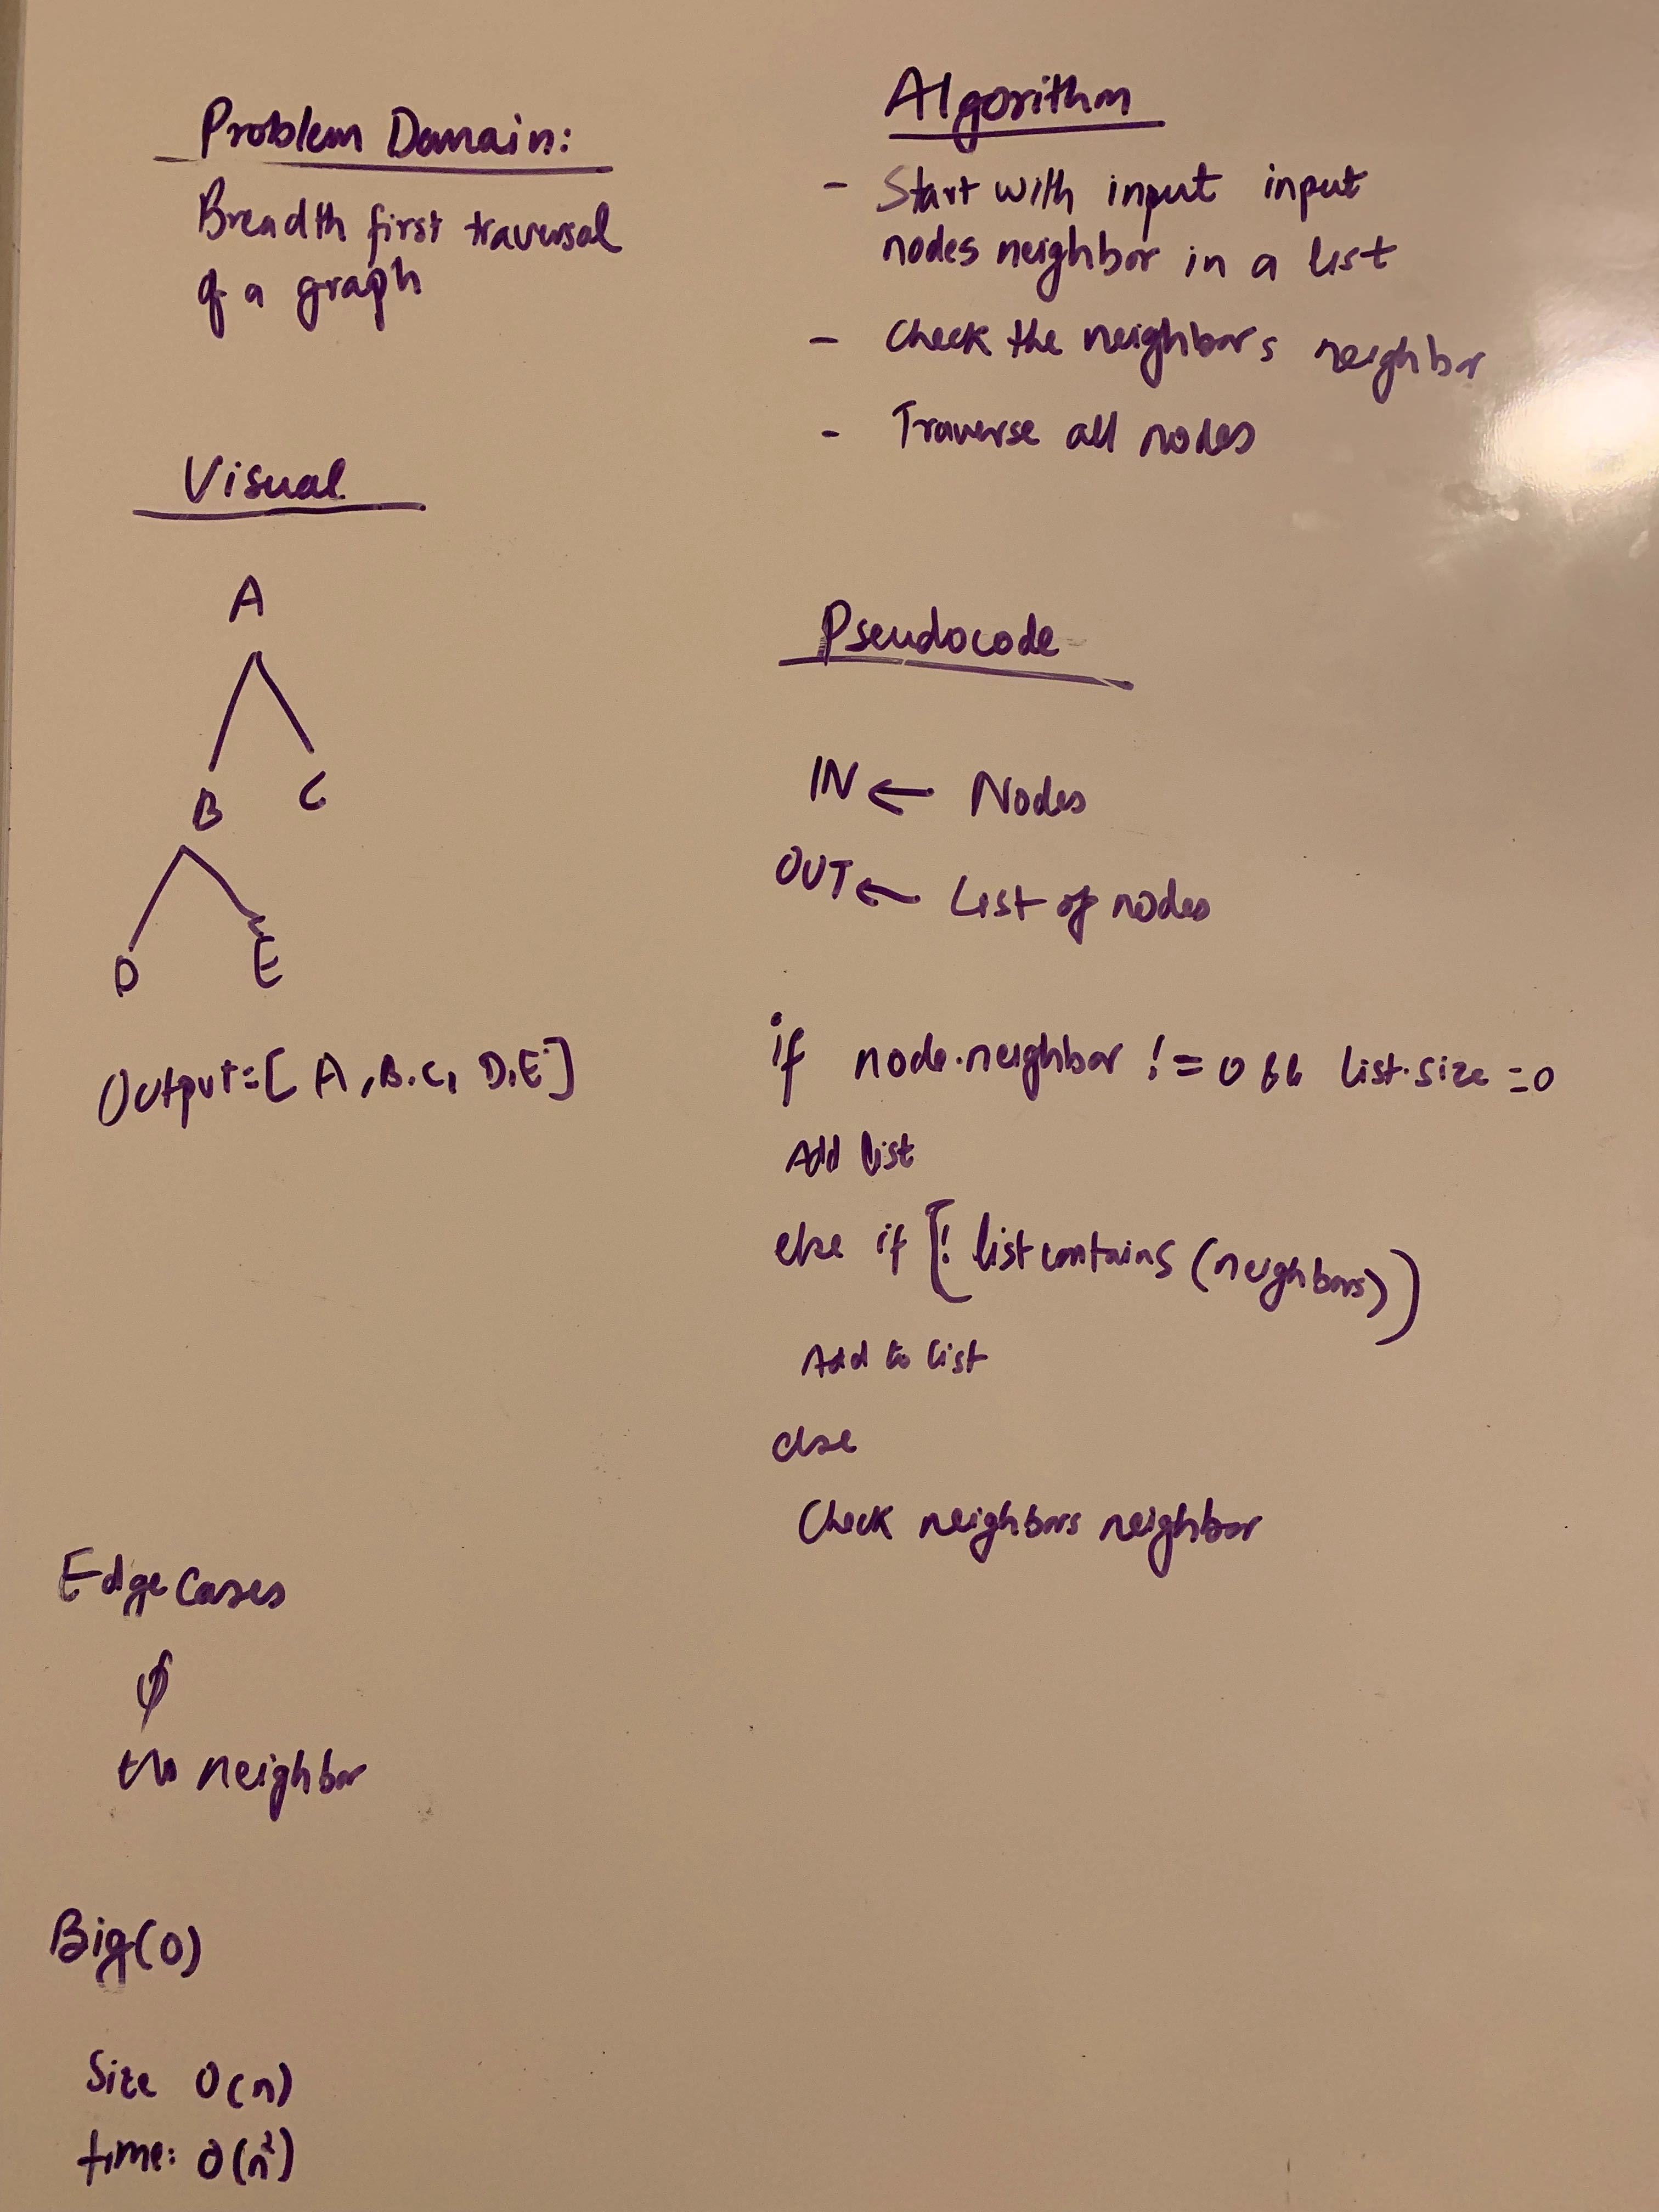 Problem Domain:
Breadth first traversal
of a graph
Visual
A
B C
D E
Output=[A,B.C, D,E]
Edge Cases
neighbor
Big(O)
Size O(n)
time: O(n²)
Algorithm
- Start with input input
nodes neighbor in a list
- Check the neighbors neighbor
- Traverse all nodes
Pseudocode
IN ← Nodes
OUT ← List of nodes
if node.neighbor != 0 && list.size =0
Add list
else if (! list contains (neighbors))
Add to list
else
Check neighbors neighbor